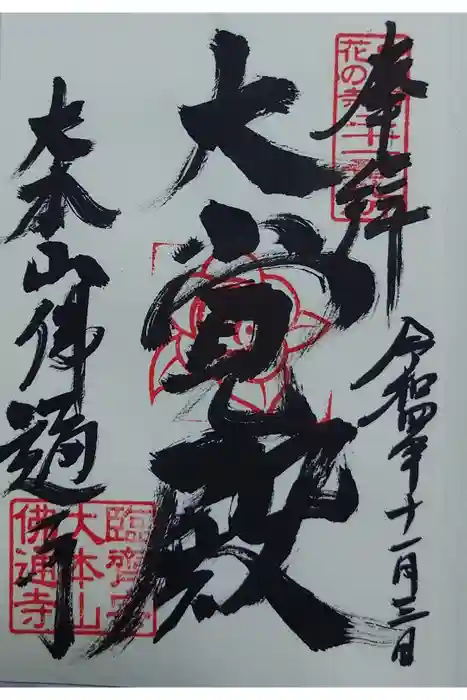 奉拝
花の寺
令和四年十一月三日
大覚殿
大本山佛通寺
臨濟宗
大本山
佛通寺